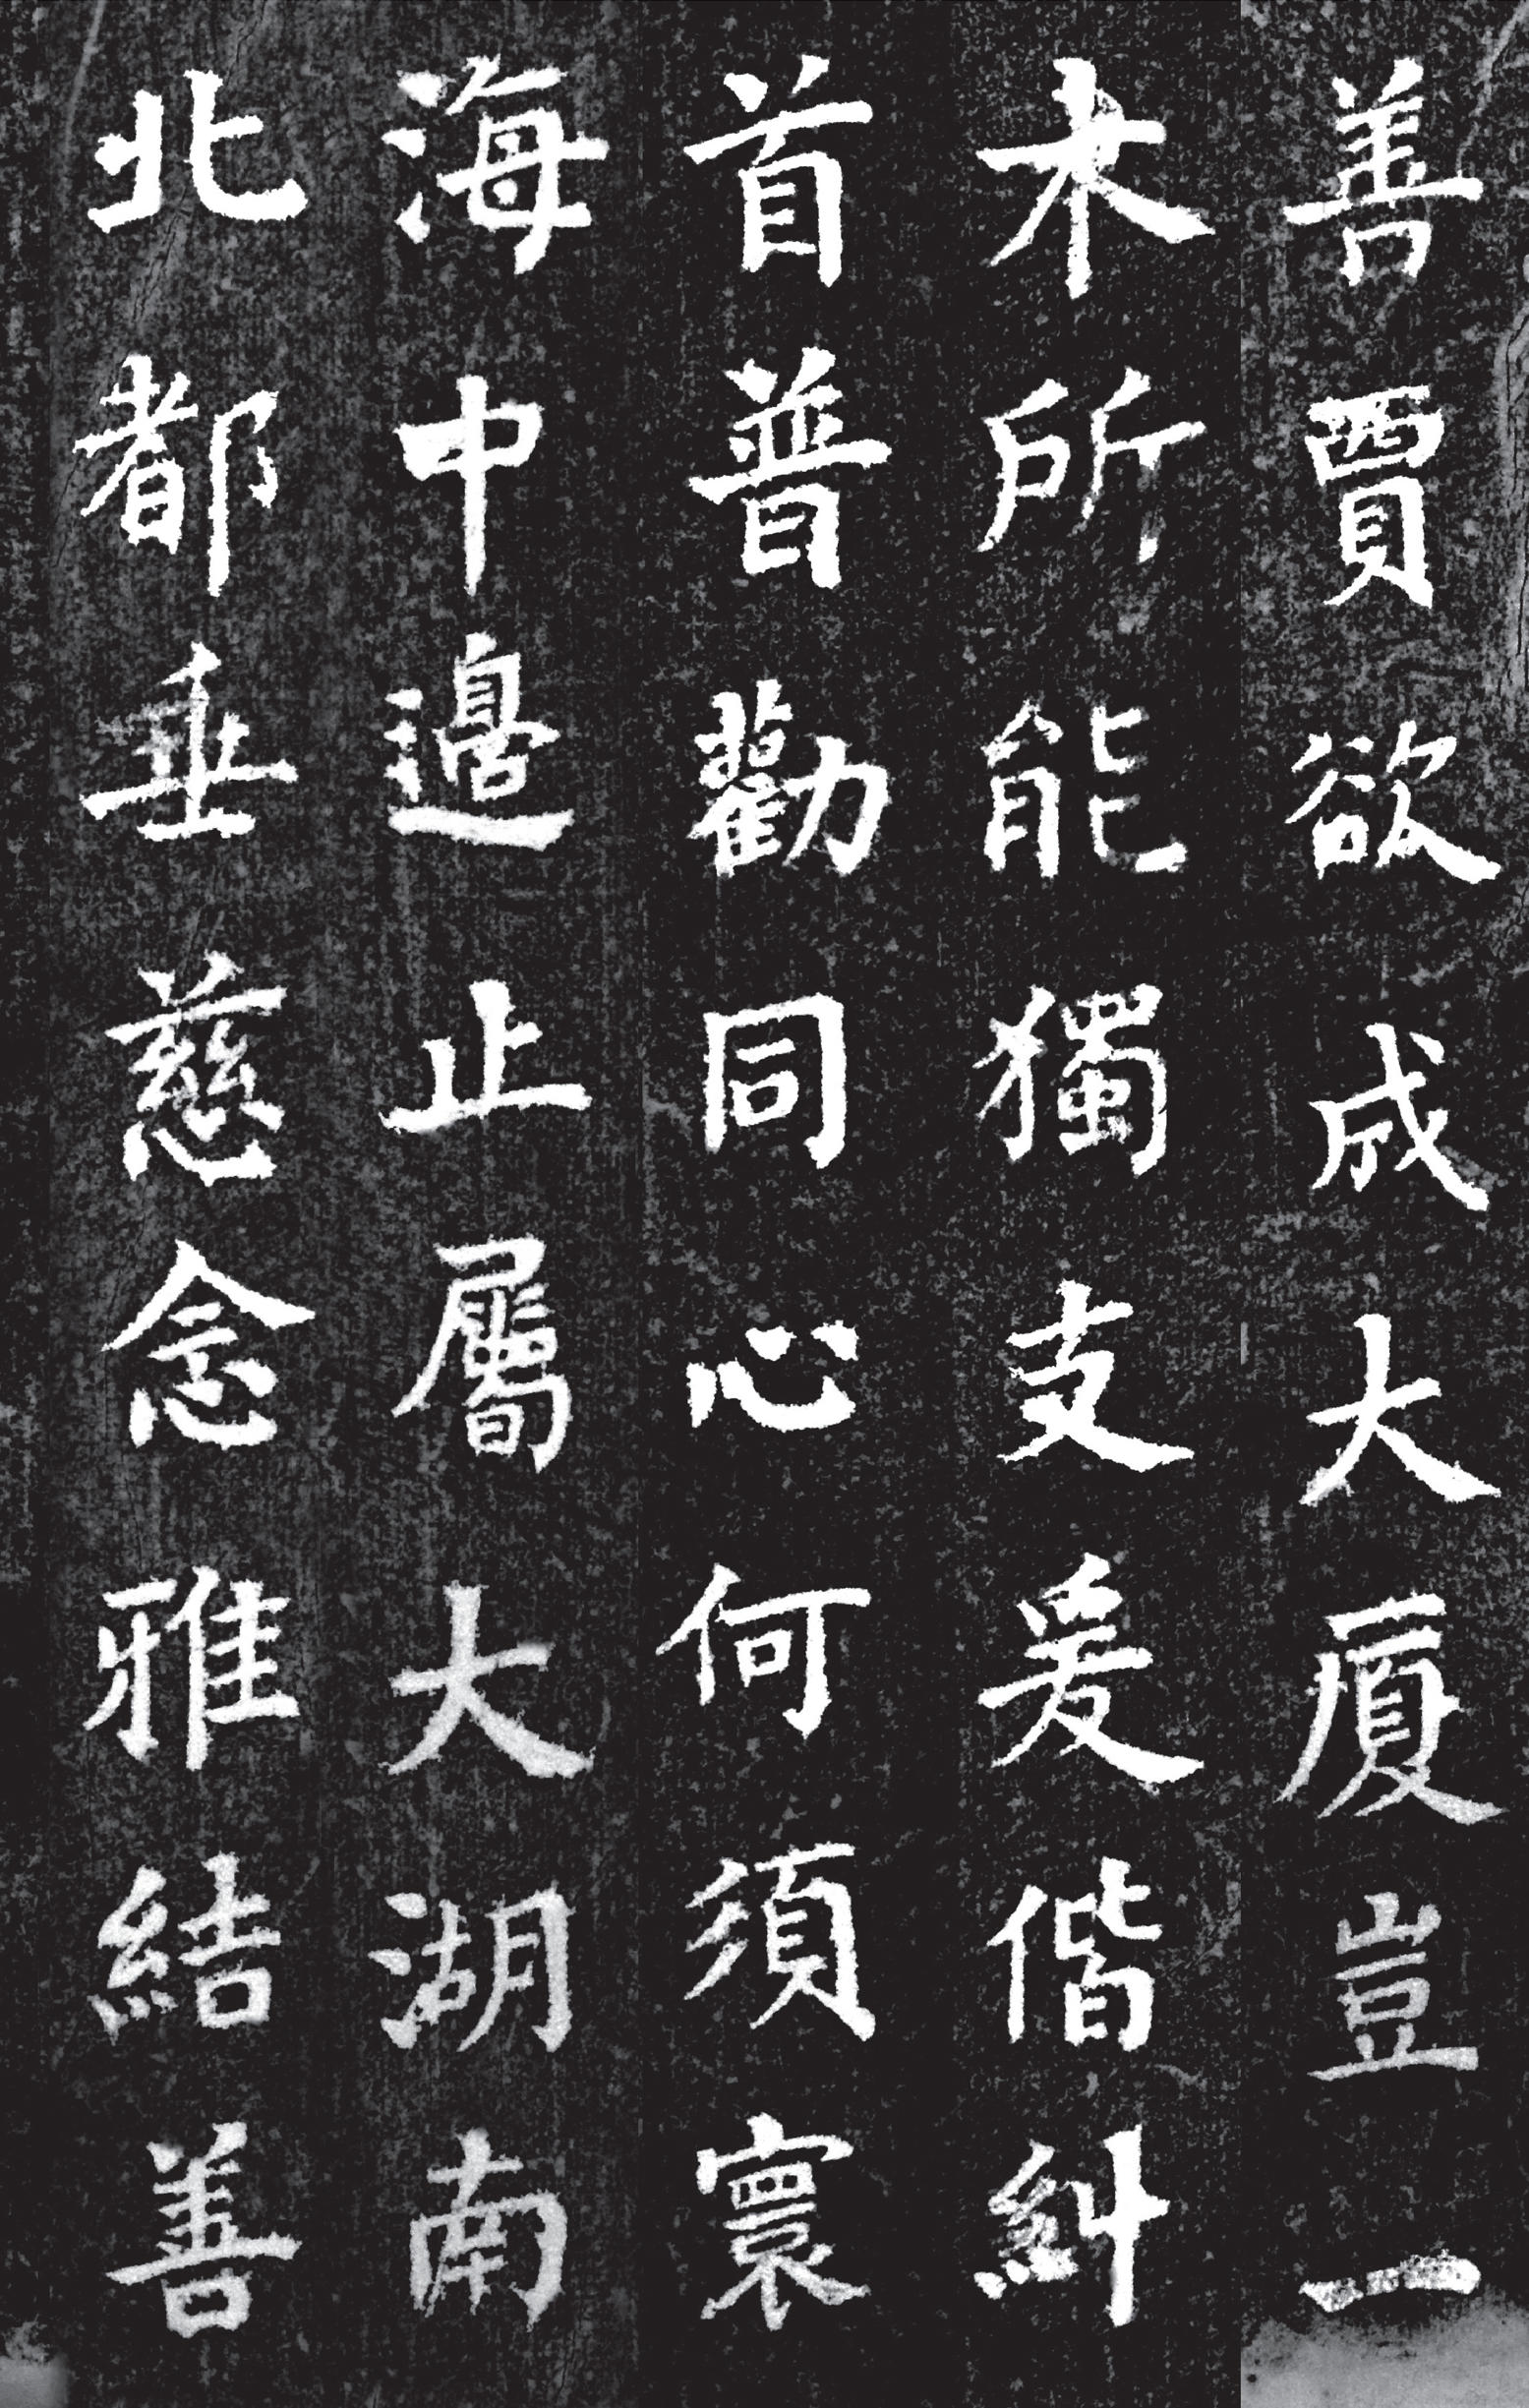 善賈欲成大廈豈一
木所能獨支爰偕糾
首普勸同心何須寰
海中邊止屬大湖南
北都垂慈念雅結善